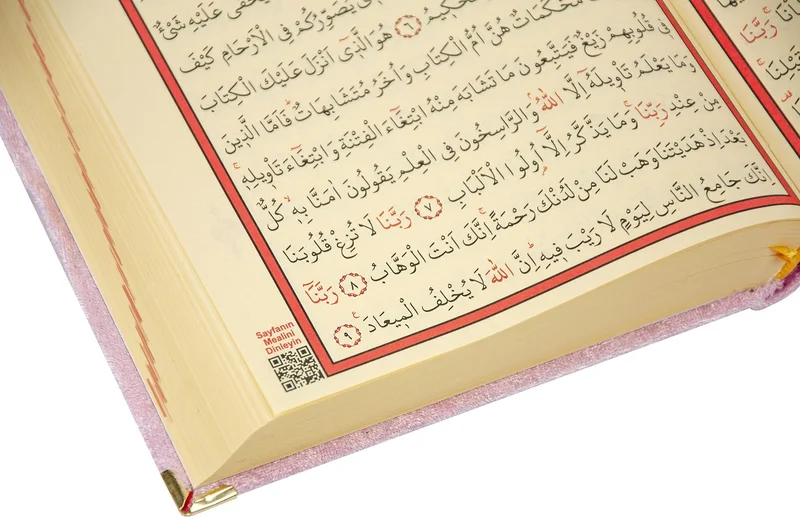 يَخْفٰى عَلَيْهِ شَيْءٌ
يُصَوِّرُكُمْ فِى الْاَرْحَامِ كَيْفَ
الْحَكٖيمُ ﴿٦﴾ هُوَ الَّذٖٓى اَنْزَلَ عَلَيْكَ الْكِتَابَ
مُحْكَمَاتٌ هُنَّ اُمُّ الْكِتَابِ وَاُخَرُ مُتَشَابِهَاتٌ فَاَمَّا الَّذٖينَ
فٖى قُلُوبِهِمْ زَيْغٌ فَيَتَّبِعُونَ مَا تَشَابَهَ مِنْهُ ابْتِغَٓاءَ الْفِتْنَةِ وَابْتِغَٓاءَ تَاْوٖيلِهٖ
وَمَا يَعْلَمُ تَاْوٖيلَهُٓ اِلَّا اللّٰهُ وَالرَّاسِخُونَ فِى الْعِلْمِ يَقُولُونَ اٰمَنَّا بِهٖ كُلٌّ
مِنْ عِنْدِ رَبِّنَا وَمَا يَذَّكَّرُ اِلَّٓا اُو۬لُوا الْاَلْبَابِ ﴿٧﴾ رَبَّنَا لَا تُزِغْ قُلُوبَنَا
بَعْدَ اِذْ هَدَيْتَنَا وَهَبْ لَنَا مِنْ لَدُنْكَ رَحْمَةً اِنَّكَ اَنْتَ الْوَهَّابُ ﴿٨﴾ رَبَّنَٓا
اِنَّكَ جَامِعُ النَّاسِ لِيَوْمٍ لَا رَيْبَ فٖيهِ اِنَّ اللّٰهَ لَا يُخْلِفُ الْمٖيعَادَ ﴿٩﴾
Sayfanın
Mealini
Dinleyin
رَبَّنَا